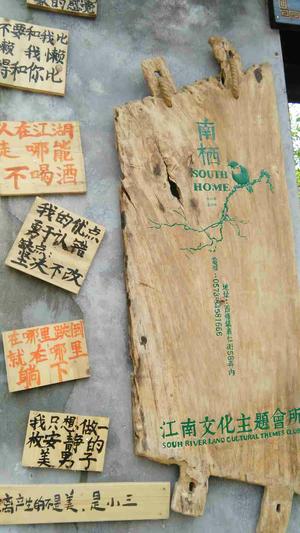 不要和我比
懒 我懒
得和你比
人在江湖
走 哪能
不喝酒
我的优点
勇于认错
缺点
坚决不改
在哪里跌倒
就在哪里
躺下
我只想做一
枚安静的
美男子
离产生的不是美，是小三
南
栖
SOUTH
HOME
地址：西塘鎮塘仁街58弄内
江南文化主題會所
SOUH RIVER LAND CULTURAL THEMES CLUB